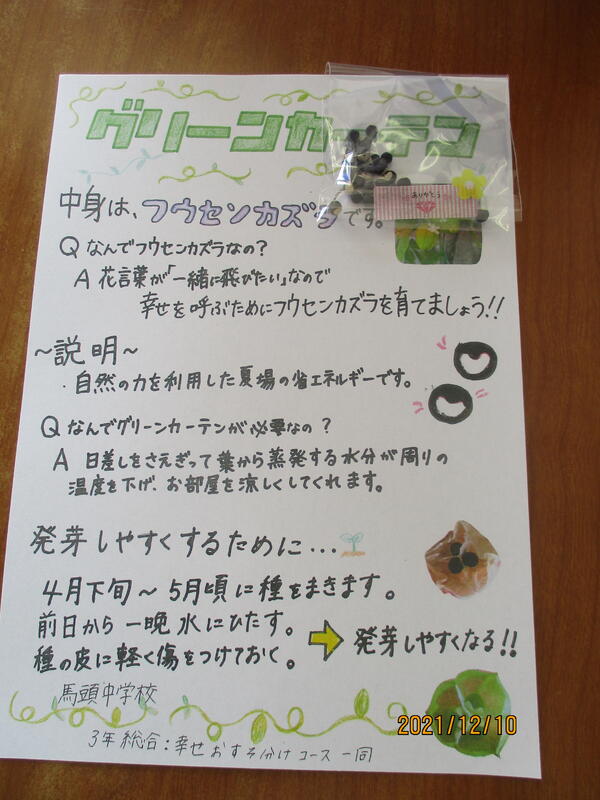 グリーンカーテン
ありがとう
中身は、フウセンカズラです。
Q なんでフウセンカズラなの？
A 花言葉が「一緒に飛びたい」なので
幸せを呼ぶためにフウセンカズラを育てましょう!!
～説明～
・自然の力を利用した夏場の省エネルギーです。
Q なんでグリーンカーテンが必要なの？
A 日差しをさえぎって葉から蒸発する水分が周りの
温度を下げ、お部屋を涼しくしてくれます。
発芽しやすくするために...
4月下旬～5月頃に種をまきます。
前日から一晩水にひたす。
種の皮に軽く傷をつけておく。
発芽しやすくなる!!
馬頭中学校
3年総合：幸せおすそ分けコース一同
2021/12/10